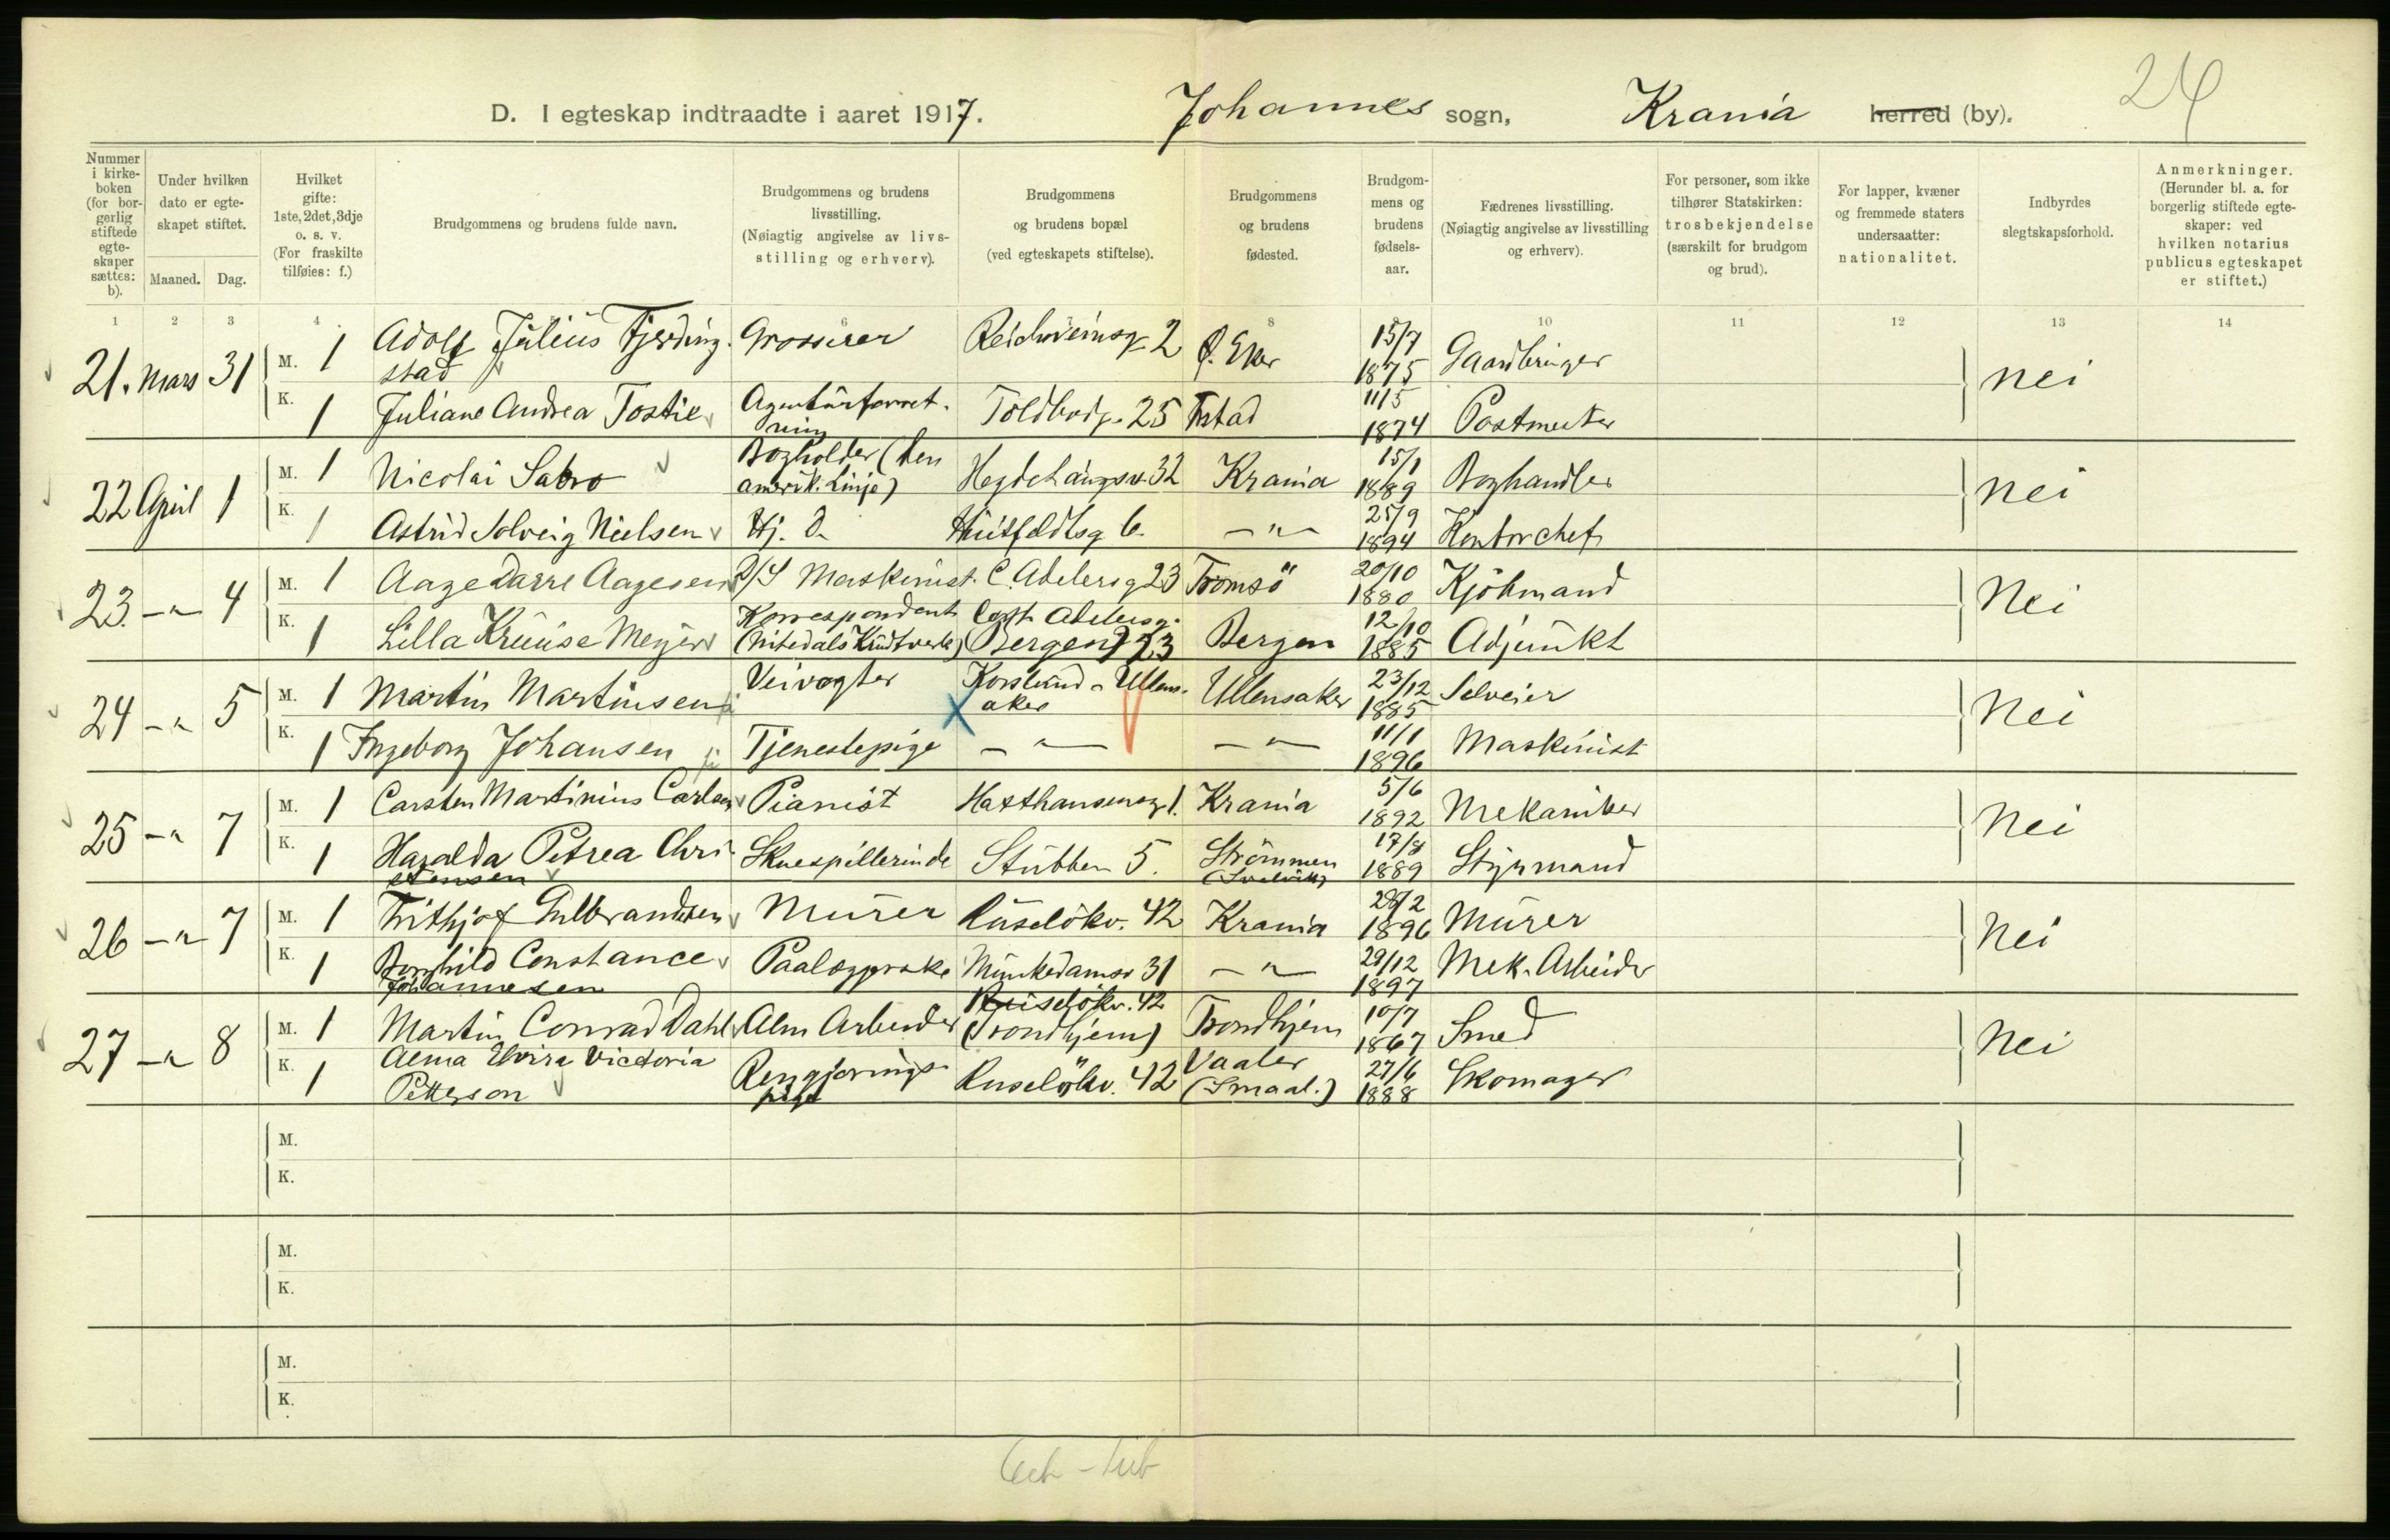 24
D. I egteskap indtraadte i aaret 1917. Johannes sogn, Krania herred (by).
Nummer i kirkeboken (for borgerlig stiftede egteskaper sættes: b).
Under hvilken dato er egteskapet stiftet.
Maaned. Dag.
Hvilket gifte: 1ste, 2det, 3dje o. s. v. (For fraskilte tilføies: f.)
Brudgommens og brudens fulde navn.
Brudgommens og brudens livsstilling. (Nøiagtig angivelse av livsstilling og erhverv).
Brudgommens og brudens bopæl (ved egteskapets stiftelse).
Brudgommens og brudens fødested.
Brudgommens og brudens fødselsaar.
Fædrenes livsstilling. (Nøiagtig angivelse av livsstilling og erhverv).
For personer, som ikke tilhører Statskirken: trosbekjendelse (særskilt for brudgom og brud).
For lapper, kvæner og fremmede staters undersaatter: nationalitet.
Indbyrdes slegtskapsforhold.
Anmerkninger. (Herunder bl. a. for borgerlig stiftede egteskaper: ved hvilken notarius publicus egteskapet er stiftet.)
1 2 3 4 6 8 10 11 12 13 14
21. Mars 31 M. 1 Adolf Julius Fjerdingstad Grosserer Reichweinsg. 2 Ø. Eker 15/7 1875 Gaardbruger Nei
K. 1 Juliane Andrea Tostie Agenturforretning Toldbodg. 25 11/5 1874 Postmester
22 April 1 M. 1 Nicolai Sabro Bogholder (den amerik. Linje) Hegdehaugsv. 32 Krania 15/1 1889 Boghandler Nei
K. 1 Astrid Solveig Nielsen Hj. d. Huitfeldtsg 6. — " — 25/9 1894 Kontorchef
23. — " — 4 M. 1 Aage Darre Aagesen D/S Maskinist. C. Adelersg 23 Tromsö 20/10 1880 Kjöbmand Nei
K. 1 Lilla Kruuse Meyer Korrespondent (Nitedals Krudtverk) Cort Adelersg. (Bergen) 23 Bergen 12/10 1885 Adjunkt
24 — " 5 M. 1 Martin Martinsen Veivogter Korslund - Ullensaker Ullensaker 23/12 1885 Selveier Nei
K. 1 Ingeborg Johansen Tjenestepige — " — — " — 11/1 1896 Maskinist
25 — " 7 M. 1 Carsten Martinius Carlsen Pianist Haxthausensg 1. Krania 5/6 1892 Mekaniker Nei
K. 1 Haralda Petrea Christensen Skuespillerinde Stubben 5. Strömmen (Svelvik) 17/8 1889 Styrmand
26 — " — 7 M. 1 Frithjof Gulbrandsen Murer Ruselökv. 42 Krania 28/2 1896 Murer Nei
K. 1 Borghild Constance Johannesen Paalægerske Munkedamsv 31 — " — 29/12 1897 Mek. Arbeider
27 — " 8 M. 1 Martin Conrad Dahl Alm Arbeider Ruselökv. 42 (Trondhjem) Trondhjem 10/7 1867 Smed Nei
K. 1 Alma Elvira Victoria Petterson Rengjöringspige Ruselökv. 42 Vaaler (Smaal.) 27/6 1888 Skomager
M.
K.
M.
K.
M.
K.